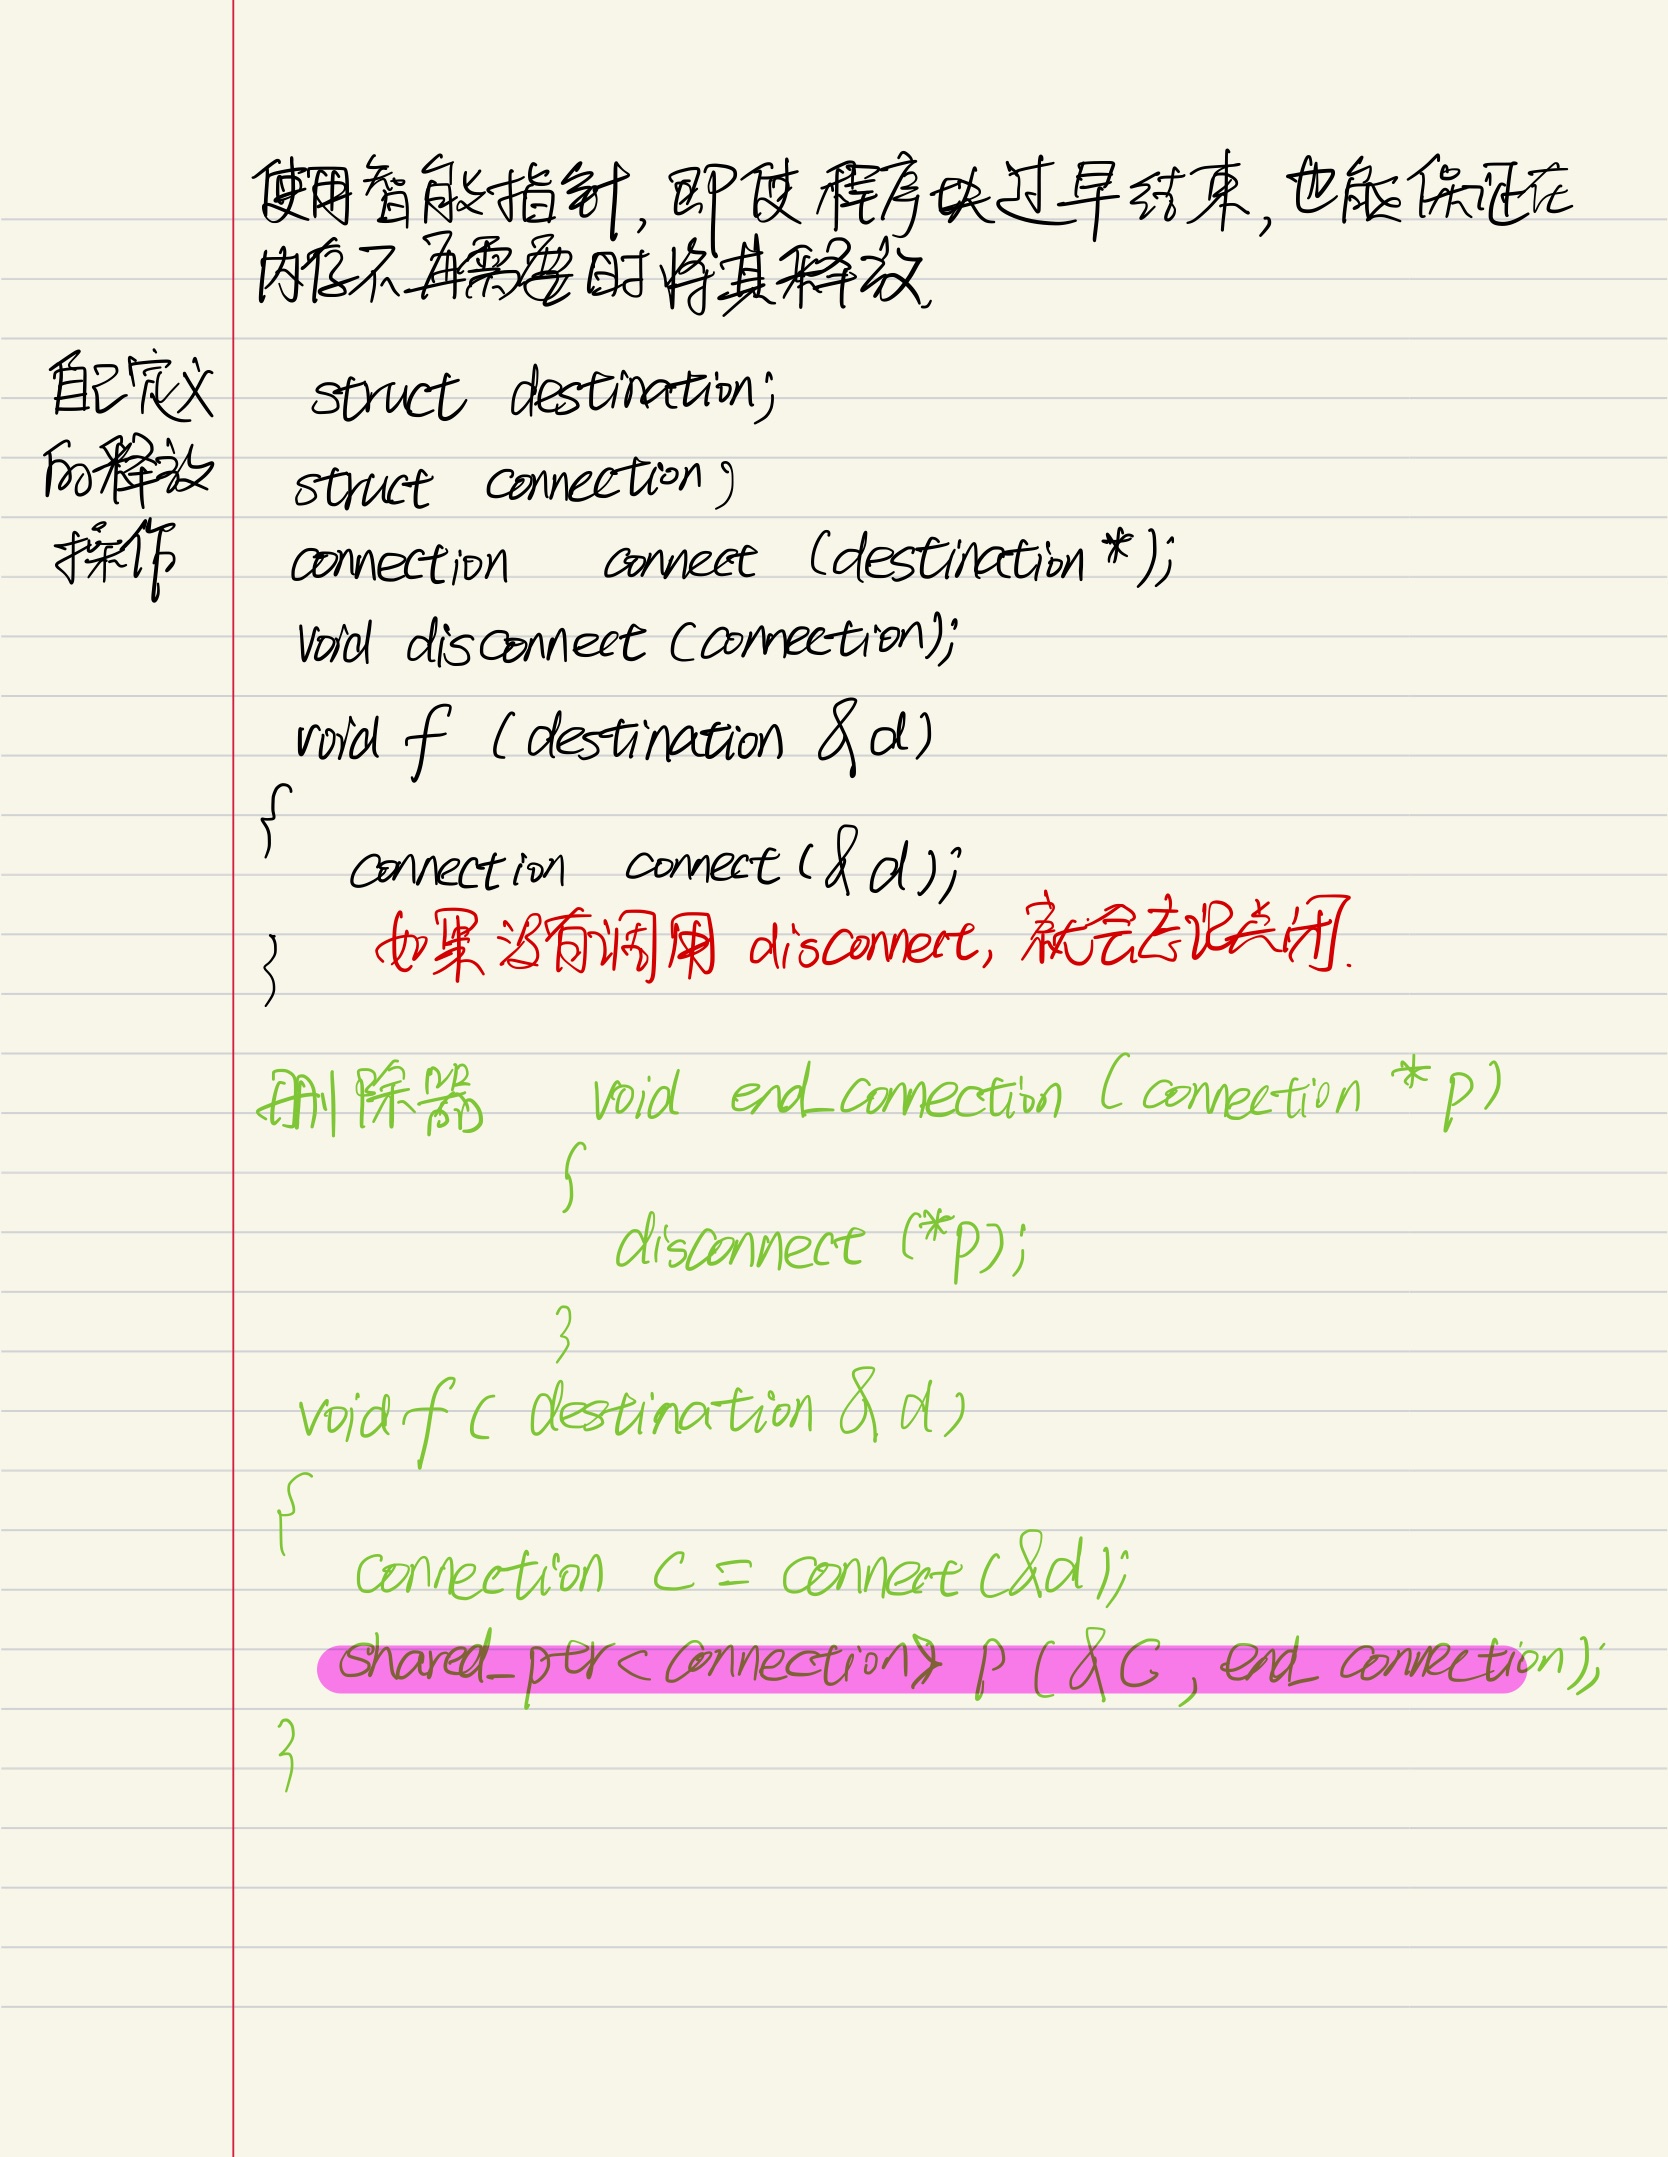 使用智能指针,即使程序块过早结束,也能保证在
内存不再需要时将其释放.
自己定义
的释放
操作
struct destination;
struct connection;
connection connect (destination *);
void disconnect (connection);
void f (destination & d)
{
connection connect (& d);
如果没有调用 disconnect, 就会忘记关闭.
}
删除器 void end_connection (connection * p)
{
disconnect (*p);
}
void f ( destination & d)
{
connection C = connect (&d);
shared_ptr<connection> p (& C, end_connection);
}